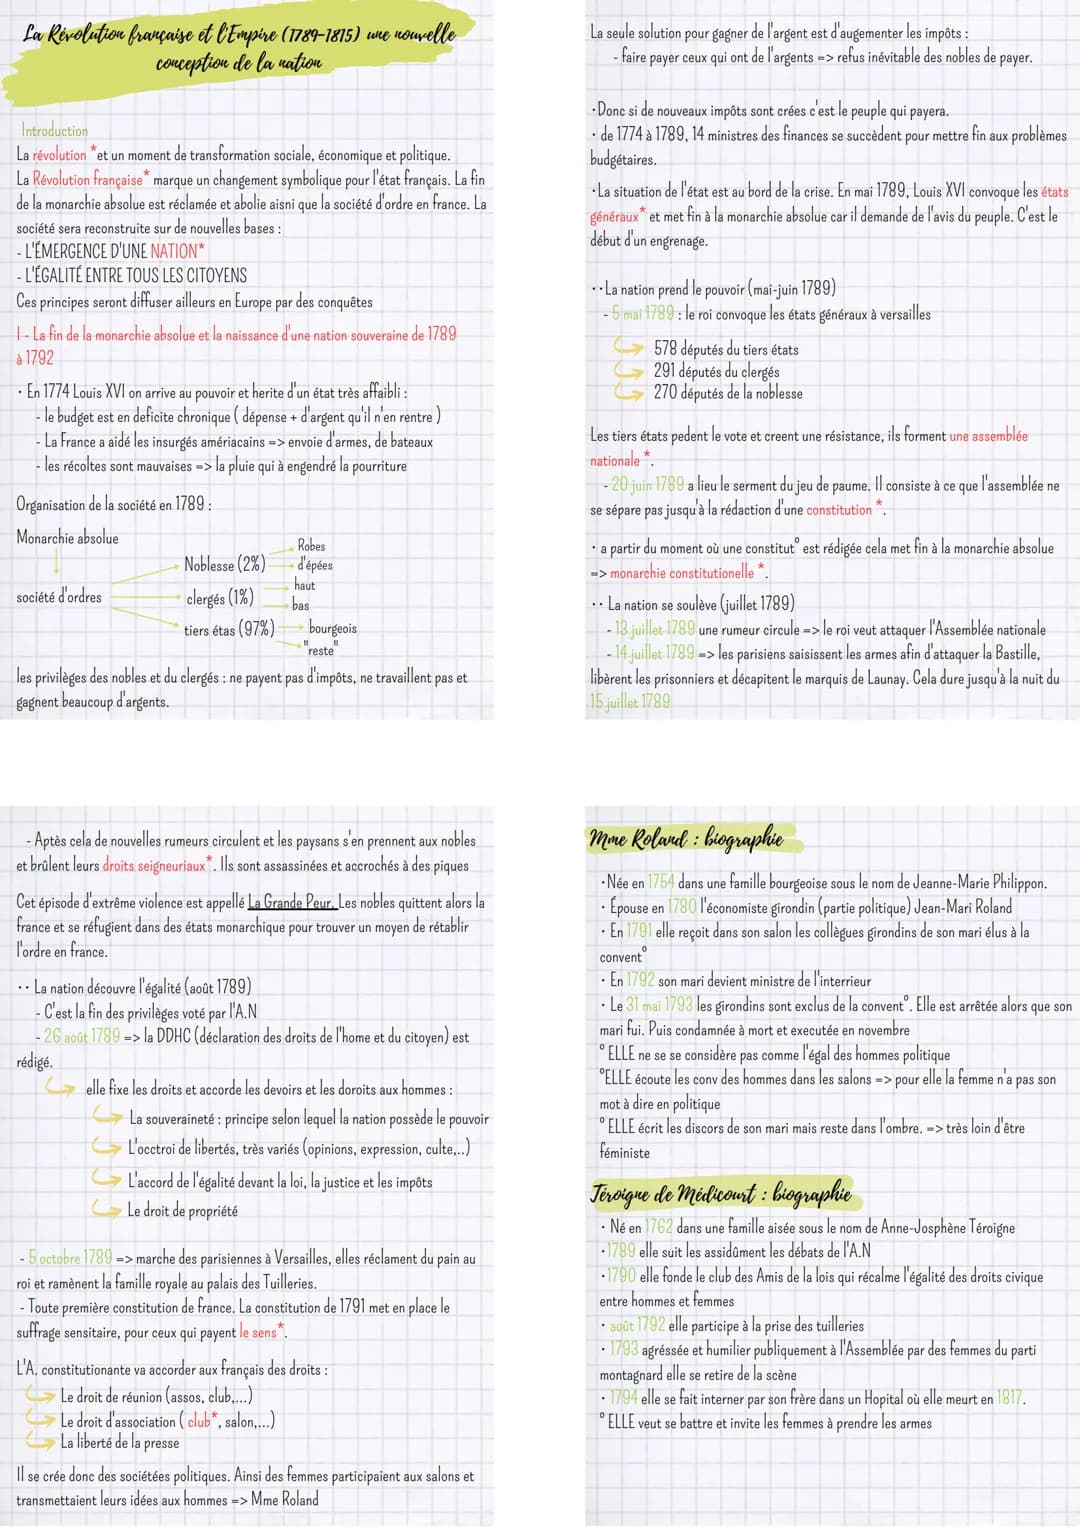 La Révolution française et l'Empire (1789-1815) une nouvelle
conception de la nation
Introduction
La révolution * et un moment de transformation sociale, économique et politique.
La Révolution française* marque un changement symbolique pour l'état français. La fin
de la monarchie absolue est réclamée et abolie aisni que la société d'ordre en france. La
société sera reconstruite sur de nouvelles bases :
- L'ÉMERGENCE D'UNE NATION*
- L'ÉGALITÉ ENTRE TOUS LES CITOYENS
Ces principes seront diffuser ailleurs en Europe par des conquêtes
I - La fin de la monarchie absolue et la naissance d'une nation souveraine de 1789
à 1792
· En 1774 Louis XVI on arrive au pouvoir et herite d'un état très affaibli :
- le budget est en deficite chronique ( dépense + d'argent qu'il n'en rentre )
- La France a aidé les insurgés amériacains => envoie d'armes, de bateaux
- les récoltes sont mauvaises => la pluie qui à engendré la pourriture
Organisation de la société en 1789 :
Monarchie absolue
société d'ordres
Noblesse (2%)
Robes
d'épées
clergés (1%)
haut
bas
tiers étas (97%)
bourgeois
"reste"
les privilèges des nobles et du clergés : ne payent pas d'impôts, ne travaillent pas et
gagnent beaucoup d'argents.
La seule solution pour gagner de l'argent est d'augementer les impôts :
- faire payer ceux qui ont de l'argents => refus inévitable des nobles de payer.
·Donc si de nouveaux impôts sont crées c'est le peuple qui payera.
· de 1774 à 1789, 14 ministres des finances se succèdent pour mettre fin aux problèmes
budgétaires.
·La situation de l'état est au bord de la crise. En mai 1789, Louis XVI convoque les états
généraux* et met fin à la monarchie absolue car il demande de l'avis du peuple. C'est le
début d'un engrenage.
··La nation prend le pouvoir (mai-juin 1789)
- 5 mai 1789 : le roi convoque les états généraux à versailles
578 députés du tiers états
291 députés du clergés
270 députés de la noblesse
Les tiers états pedent le vote et creent une résistance, ils forment une assemblée
nationale *.
- 20 juin 1789 a lieu le serment du jeu de paume. Il consiste à ce que l'assemblée ne
se sépare pas jusqu'à la rédaction d'une constitution *.
· a partir du moment où une constitut° est rédigée cela met fin à la monarchie absolue
=> monarchie constitutionelle *.
·· La nation se soulève (juillet 1789)
- 13 juillet 1789 une rumeur circule => le roi veut attaquer l'Assemblée nationale
- 14 juillet 1789 => les parisiens saisissent les armes afin d'attaquer la Bastille,
libèrent les prisonniers et décapitent le marquis de Launay. Cela dure jusqu'à la nuit du
15 juillet 1789
- Aptès cela de nouvelles rumeurs circulent et les paysans s'en prennent aux nobles
et brûlent leurs droits seigneuriaux*. Ils sont assassinées et accrochés à des piques
Cet épisode d'extrême violence est appellé La Grande Peur. Les nobles quittent alors la
france et se réfugient dans des états monarchique pour trouver un moyen de rétablir
l'ordre en france.
·· La nation découvre l'égalité (août 1789)
- C'est la fin des privilèges voté par l'A.N
- 26 août 1789 => la DDHC (déclaration des droits de l'home et du citoyen) est
rédigé.
elle fixe les droits et accorde les devoirs et les doroits aux hommes :
La souveraineté : principe selon lequel la nation possède le pouvoir
L'occtroi de libertés, très variés (opinions, expression, culte,..)
L'accord de l'égalité devant la loi, la justice et les impôts
Le droit de propriété
- 5 octobre 1789 => marche des parisiennes à Versailles, elles réclament du pain au
roi et ramènent la famille royale au palais des Tuilleries.
- Toute première constitution de france. La constitution de 1791 met en place le
suffrage sensitaire, pour ceux qui payent le sens*.
L'A. constitutionante va accorder aux français des droits :
Le droit de réunion (assos, club,...)
Le droit d'association ( club*, salon,...)
La liberté de la presse
Il se crée donc des sociétées politiques. Ainsi des femmes participaient aux salons et
transmettaient leurs idées aux hommes => Mme Roland
Mme Roland : biographie
·Née en 1754 dans une famille bourgeoise sous le nom de Jeanne-Marie Philippon.
· Épouse en 1780 l'économiste girondin (partie politique) Jean-Mari Roland
· En 1791 elle reçoit dans son salon les collègues girondins de son mari élus à la
convent°
· En 1792 son mari devient ministre de l'interrieur
· Le 31 mai 1793 les girondins sont exclus de la convent°. Elle est arrêtée alors que son
mari fui. Puis condamnée à mort et executée en novembre
° ELLE ne se se considère pas comme l'égal des hommes politique
°ELLE écoute les conv des hommes dans les salons => pour elle la femme n'a pas son
mot à dire en politique
° ELLE écrit les discors de son mari mais reste dans l'ombre. => très loin d'être
féministe
Téroigne de Médicourt : biographie
· Né en 1762 dans une famille aisée sous le nom de Anne-Josphène Téroigne
·1789 elle suit les assidûment les débats de l'A.N
·1790 elle fonde le club des Amis de la lois qui récalme l'égalité des droits civique
entre hommes et femmes
· août 1792 elle participe à la prise des tuilleries
· 1793 agréssée et humilier publiquement à l'Assemblée par des femmes du parti
montagnard elle se retire de la scène
· 1794 elle se fait interner par son frère dans un Hopital où elle meurt en 1817.
° ELLE veut se battre et invite les femmes à prendre les armes